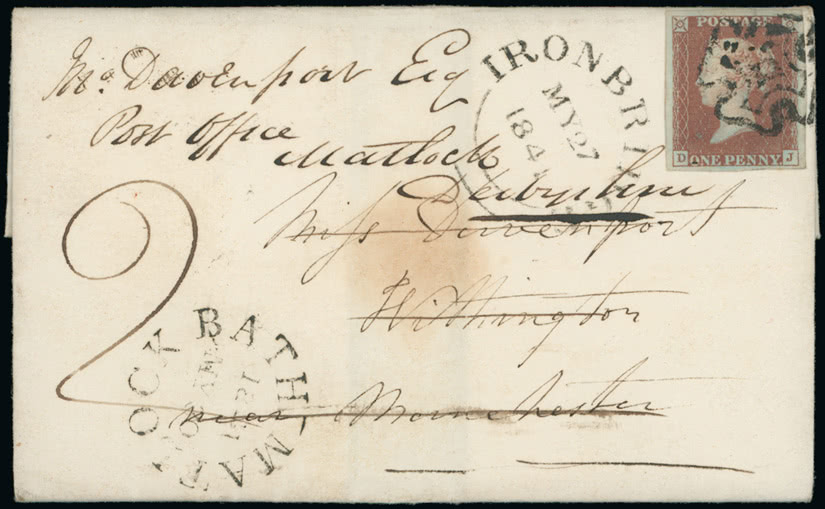 Jno. Davenport Esq
Post Office
Matlock
Derbyshire
Miss Davenport
Withington
near Manchester
2
IRONBRI
MY 27
184
POSTAGE
ONE PENNY
D J
MATLOCK BATH